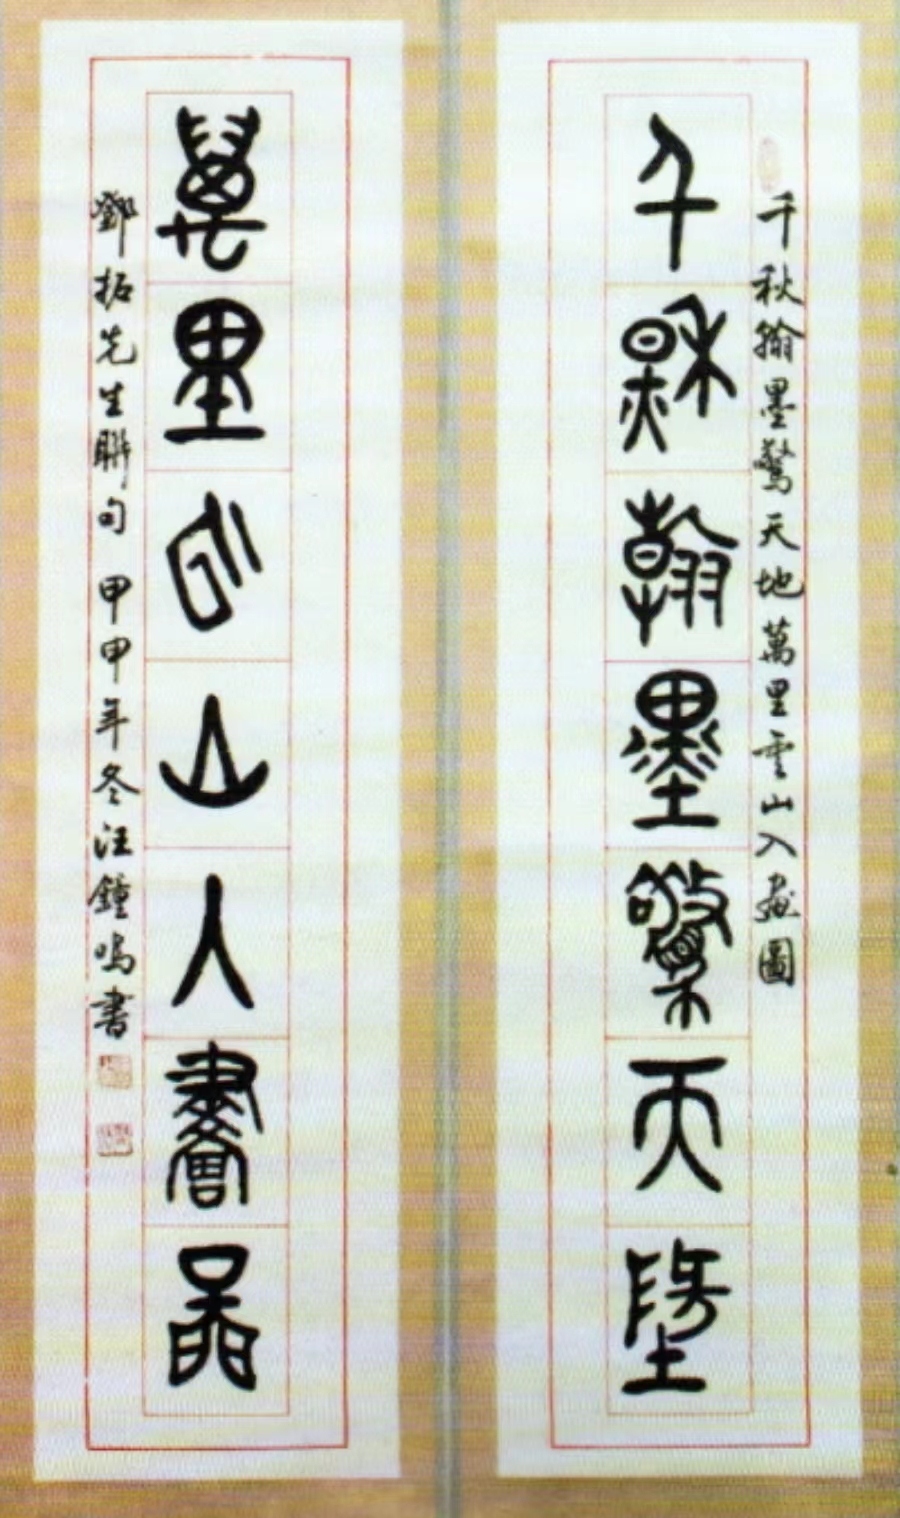 千秋翰墨驚天地萬里雲山入畫圖
千秋翰墨驚天地
萬里雲山入畫圖
鄧拓先生聯句 甲申年冬汪鐘鳴書